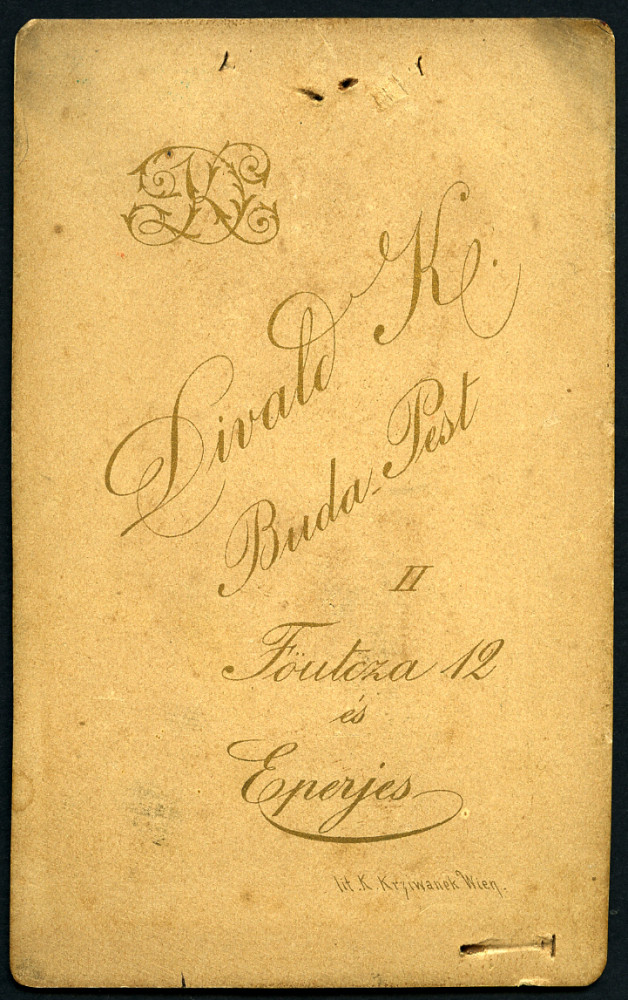 Divald K.
Buda-Pest
II
Föutcza 12
és
Eperjes
lit. K. Krziwanek Wien.